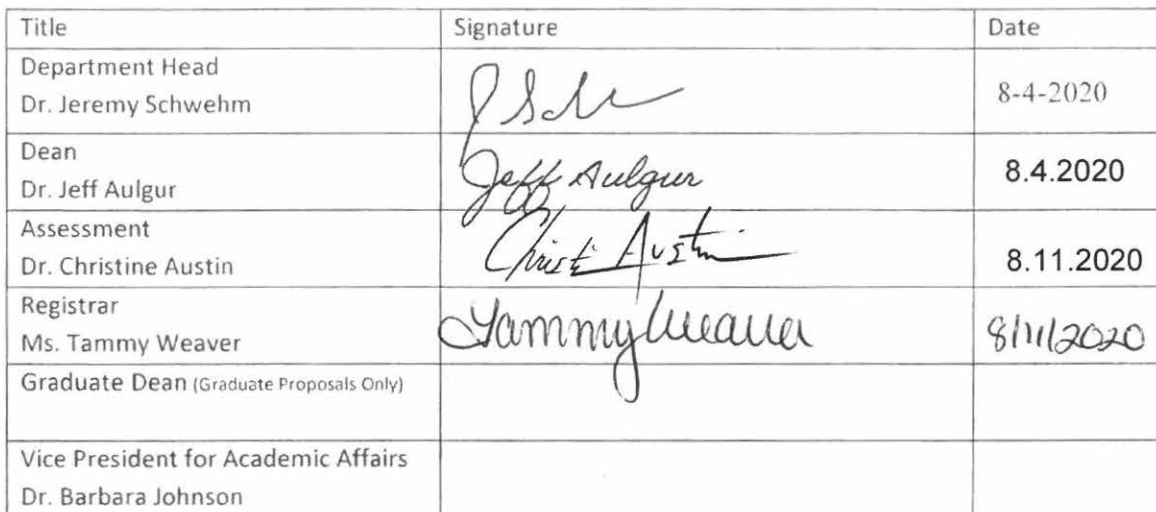 Title Signature Date
Department Head
Dr. Jeremy Schwehm
J Sch 8-4-2020
Dean
Dr. Jeff Aulgur
Jeff Aulgur 8.4.2020
Assessment
Dr. Christine Austin
Christi Austin 8.11.2020
Registrar
Ms. Tammy Weaver
Tammy Weaver 8/11/2020
Graduate Dean (Graduate Proposals Only)
Vice President for Academic Affairs
Dr. Barbara Johnson